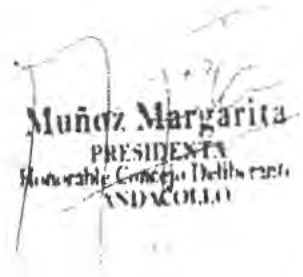 Muñoz Margarita
PRESIDENTA
Honorable Concejo Deliberante
ANDACOLLO